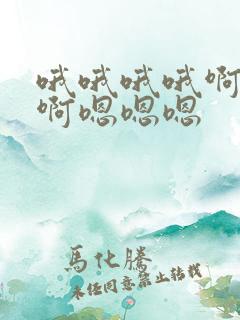 哦哦哦哦啊
啊嗯嗯嗯
馬化騰
未经同意禁止转载